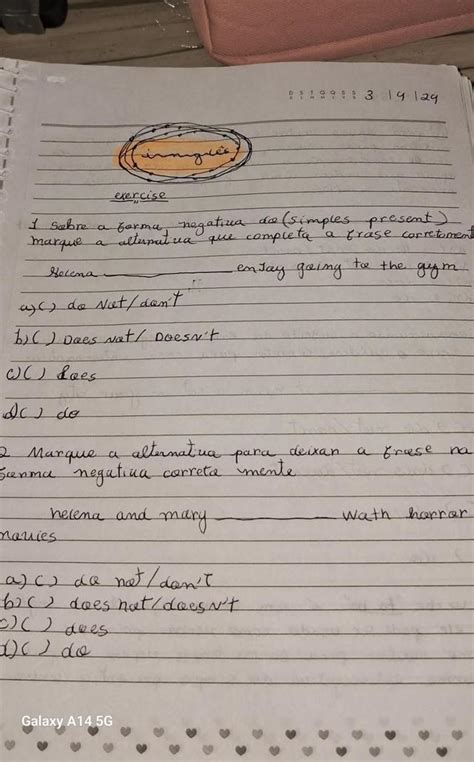 D S T Q Q S S 3 / 9 / 24
inglês
exercise
1 Sobre a forma negativa do (simples present)
marque a alternativa que completa a frase corretament
Helena ______ enjoy going to the gym
a) ( ) do Not/don't
b) ( ) Does Not/ Doesn't
c) ( ) does
d) ( ) do
2 Marque a alternatua para deixar a frase na
forma negativa correta mente
helena and mary ______ wath horror
movies
a) ( ) do not/don't
b) ( ) does not/doesn't
c) ( ) does
d) ( ) do
Galaxy A14 5G